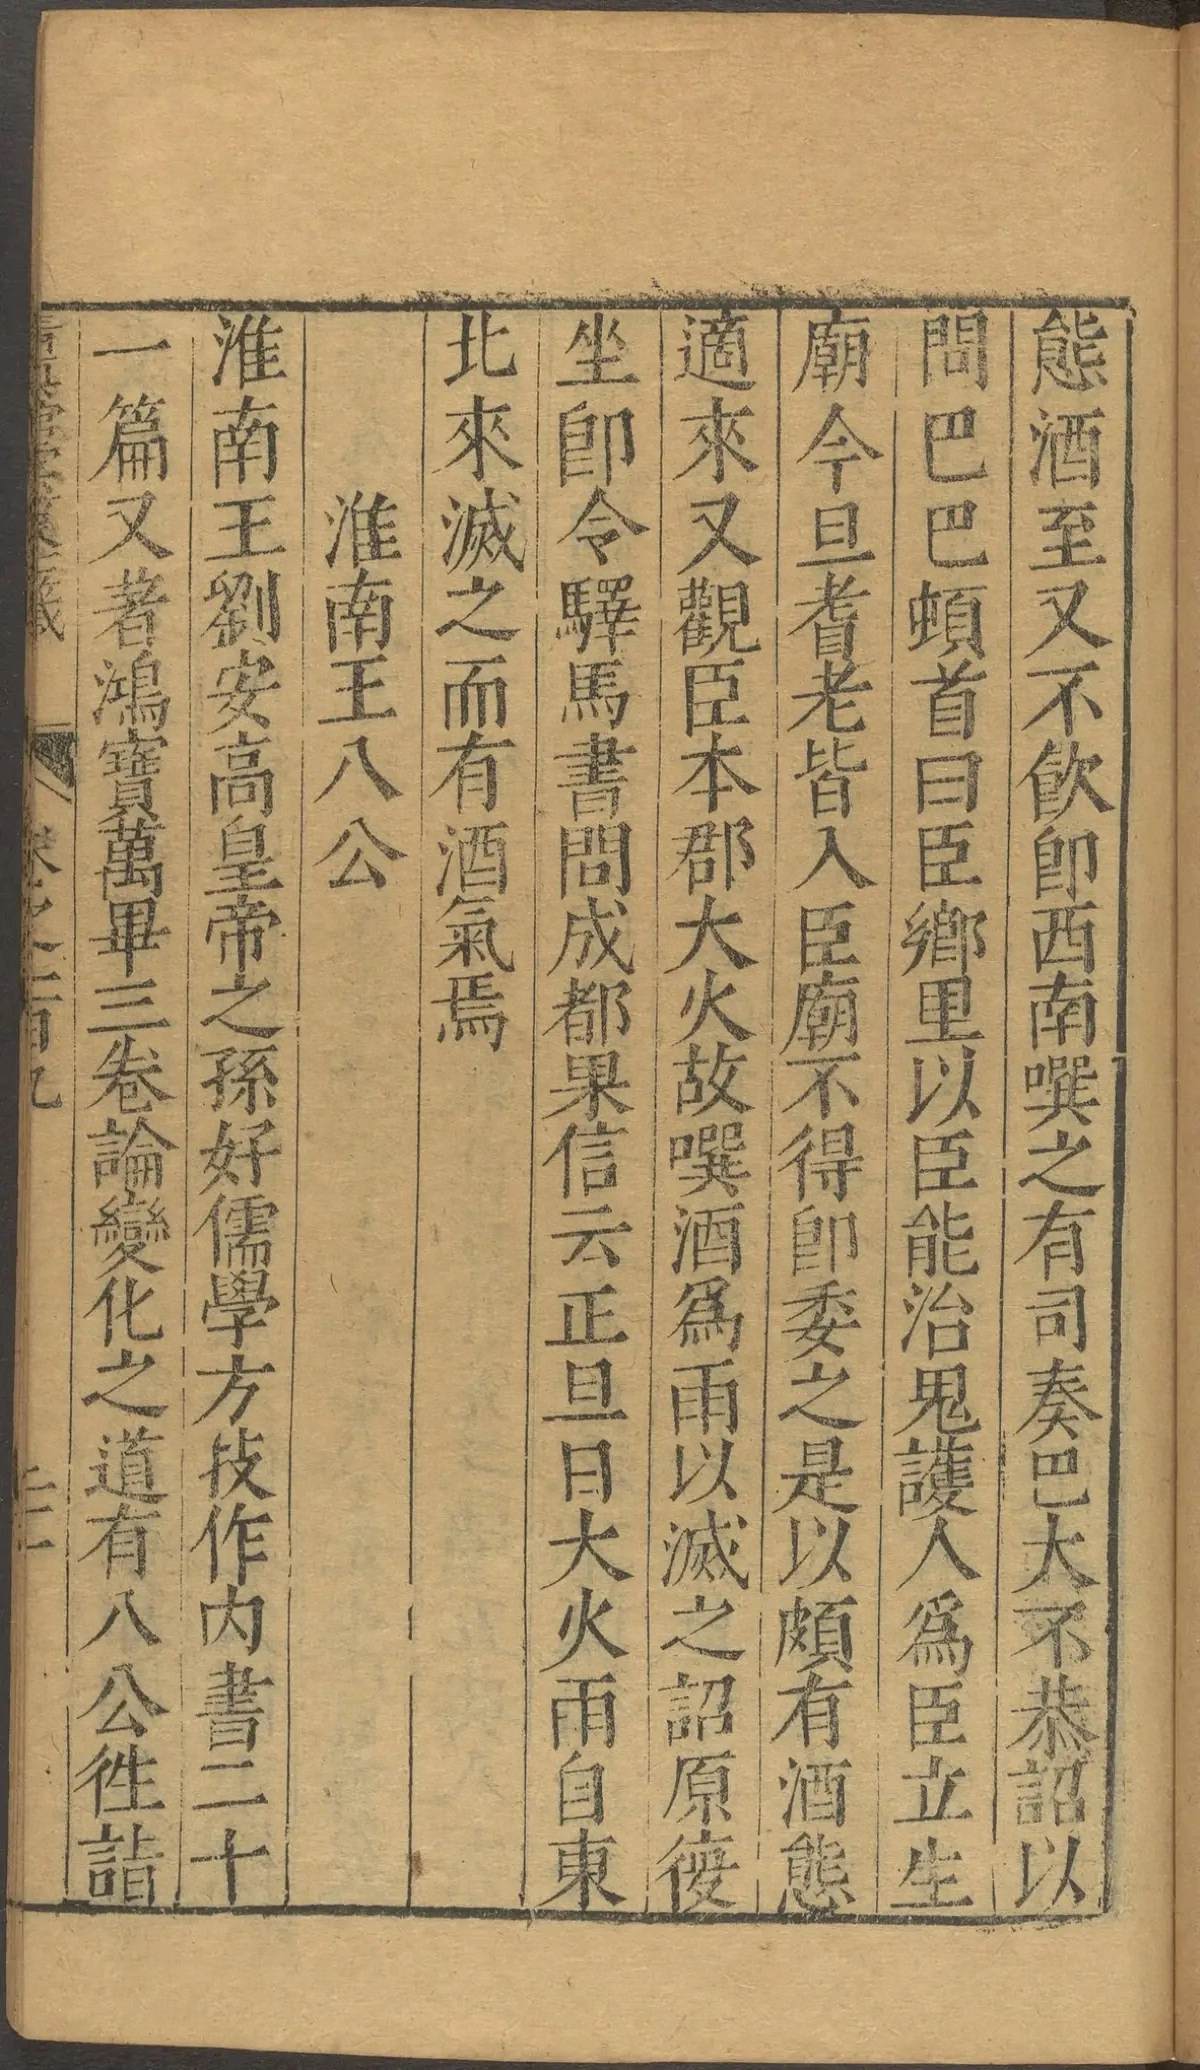 態酒至又不飲卽西南噀之有司奏巴大不恭詔以
問巴巴頓首曰臣鄉里以臣能治鬼護人爲臣立生
廟今旦耆老皆入臣廟不得卽委之是以頗有酒態
適來又觀臣本郡大火故噀酒爲雨以滅之詔原復
坐卽令驛馬書問成都果信云正旦日大火雨自東
北來滅之而有酒氣焉
淮南王八公
淮南王劉安高皇帝之孫好儒學方技作內書二十
一篇又著鴻寶萬畢三卷論變化之道有八公徃詣